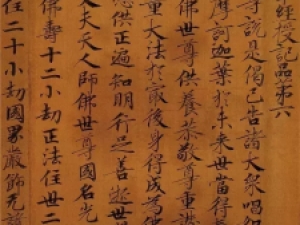 經授記品第六
說是偈已告諸大衆唱
摩訶迦葉於未來世當得
佛世尊供養恭敬尊重讚
量大法於最後身得成為佛
應供正遍知明行足善逝世
丈夫天人師佛世尊國名光
佛壽十二小劫正法住世二
住二十小劫國界嚴飾無諸